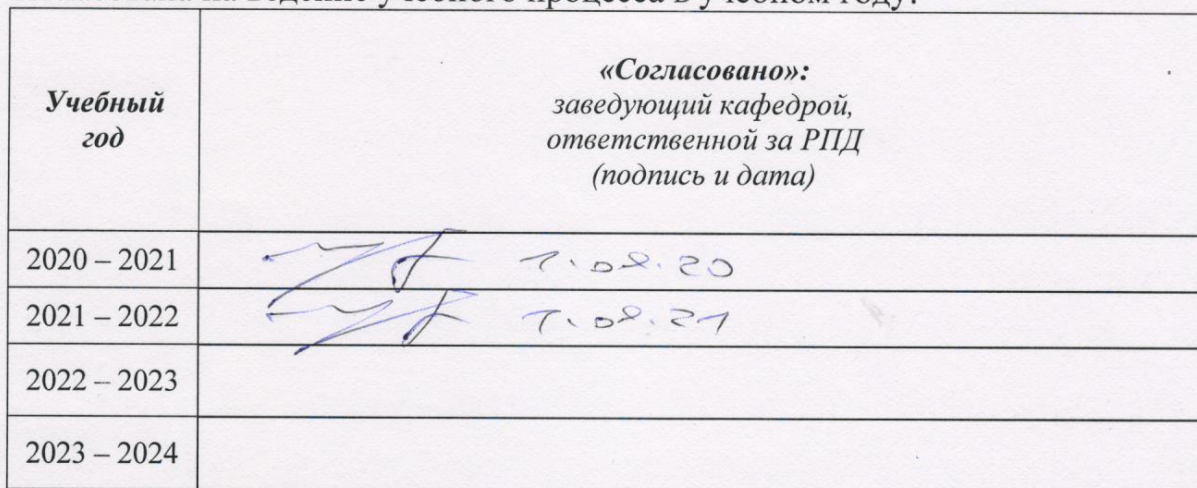 на ведение учебного процесса в учебном году:
Учебный
год
«Согласовано»:
заведующий кафедрой,
ответственной за РПД
(подпись и дата)
2020 – 2021
1.09.20
2021 – 2022
1.09.21
2022 – 2023
2023 – 2024